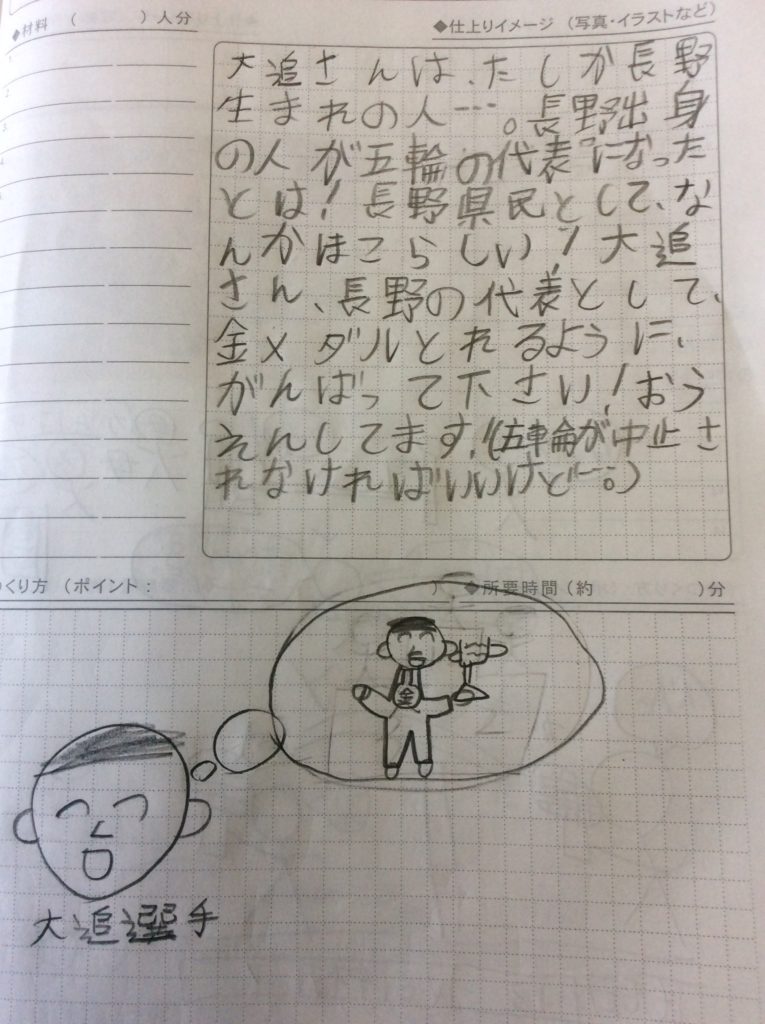 ◆材料 (     )人分
◆仕上りイメージ (写真・イラストなど)
大追さんは、たしか長野
生まれの人…。長野出身
の人が五輪の代表になった
とは!長野県民として、な
んかほこらしい!大追
さん、長野の代表として、
金メダルとれるように、
がんばって下さい!おう
えんしてます!(五輪が中止さ
れなければいいけど…。)
くり方 (ポイント:     )
◆所要時間(約     )分
金
大追選手